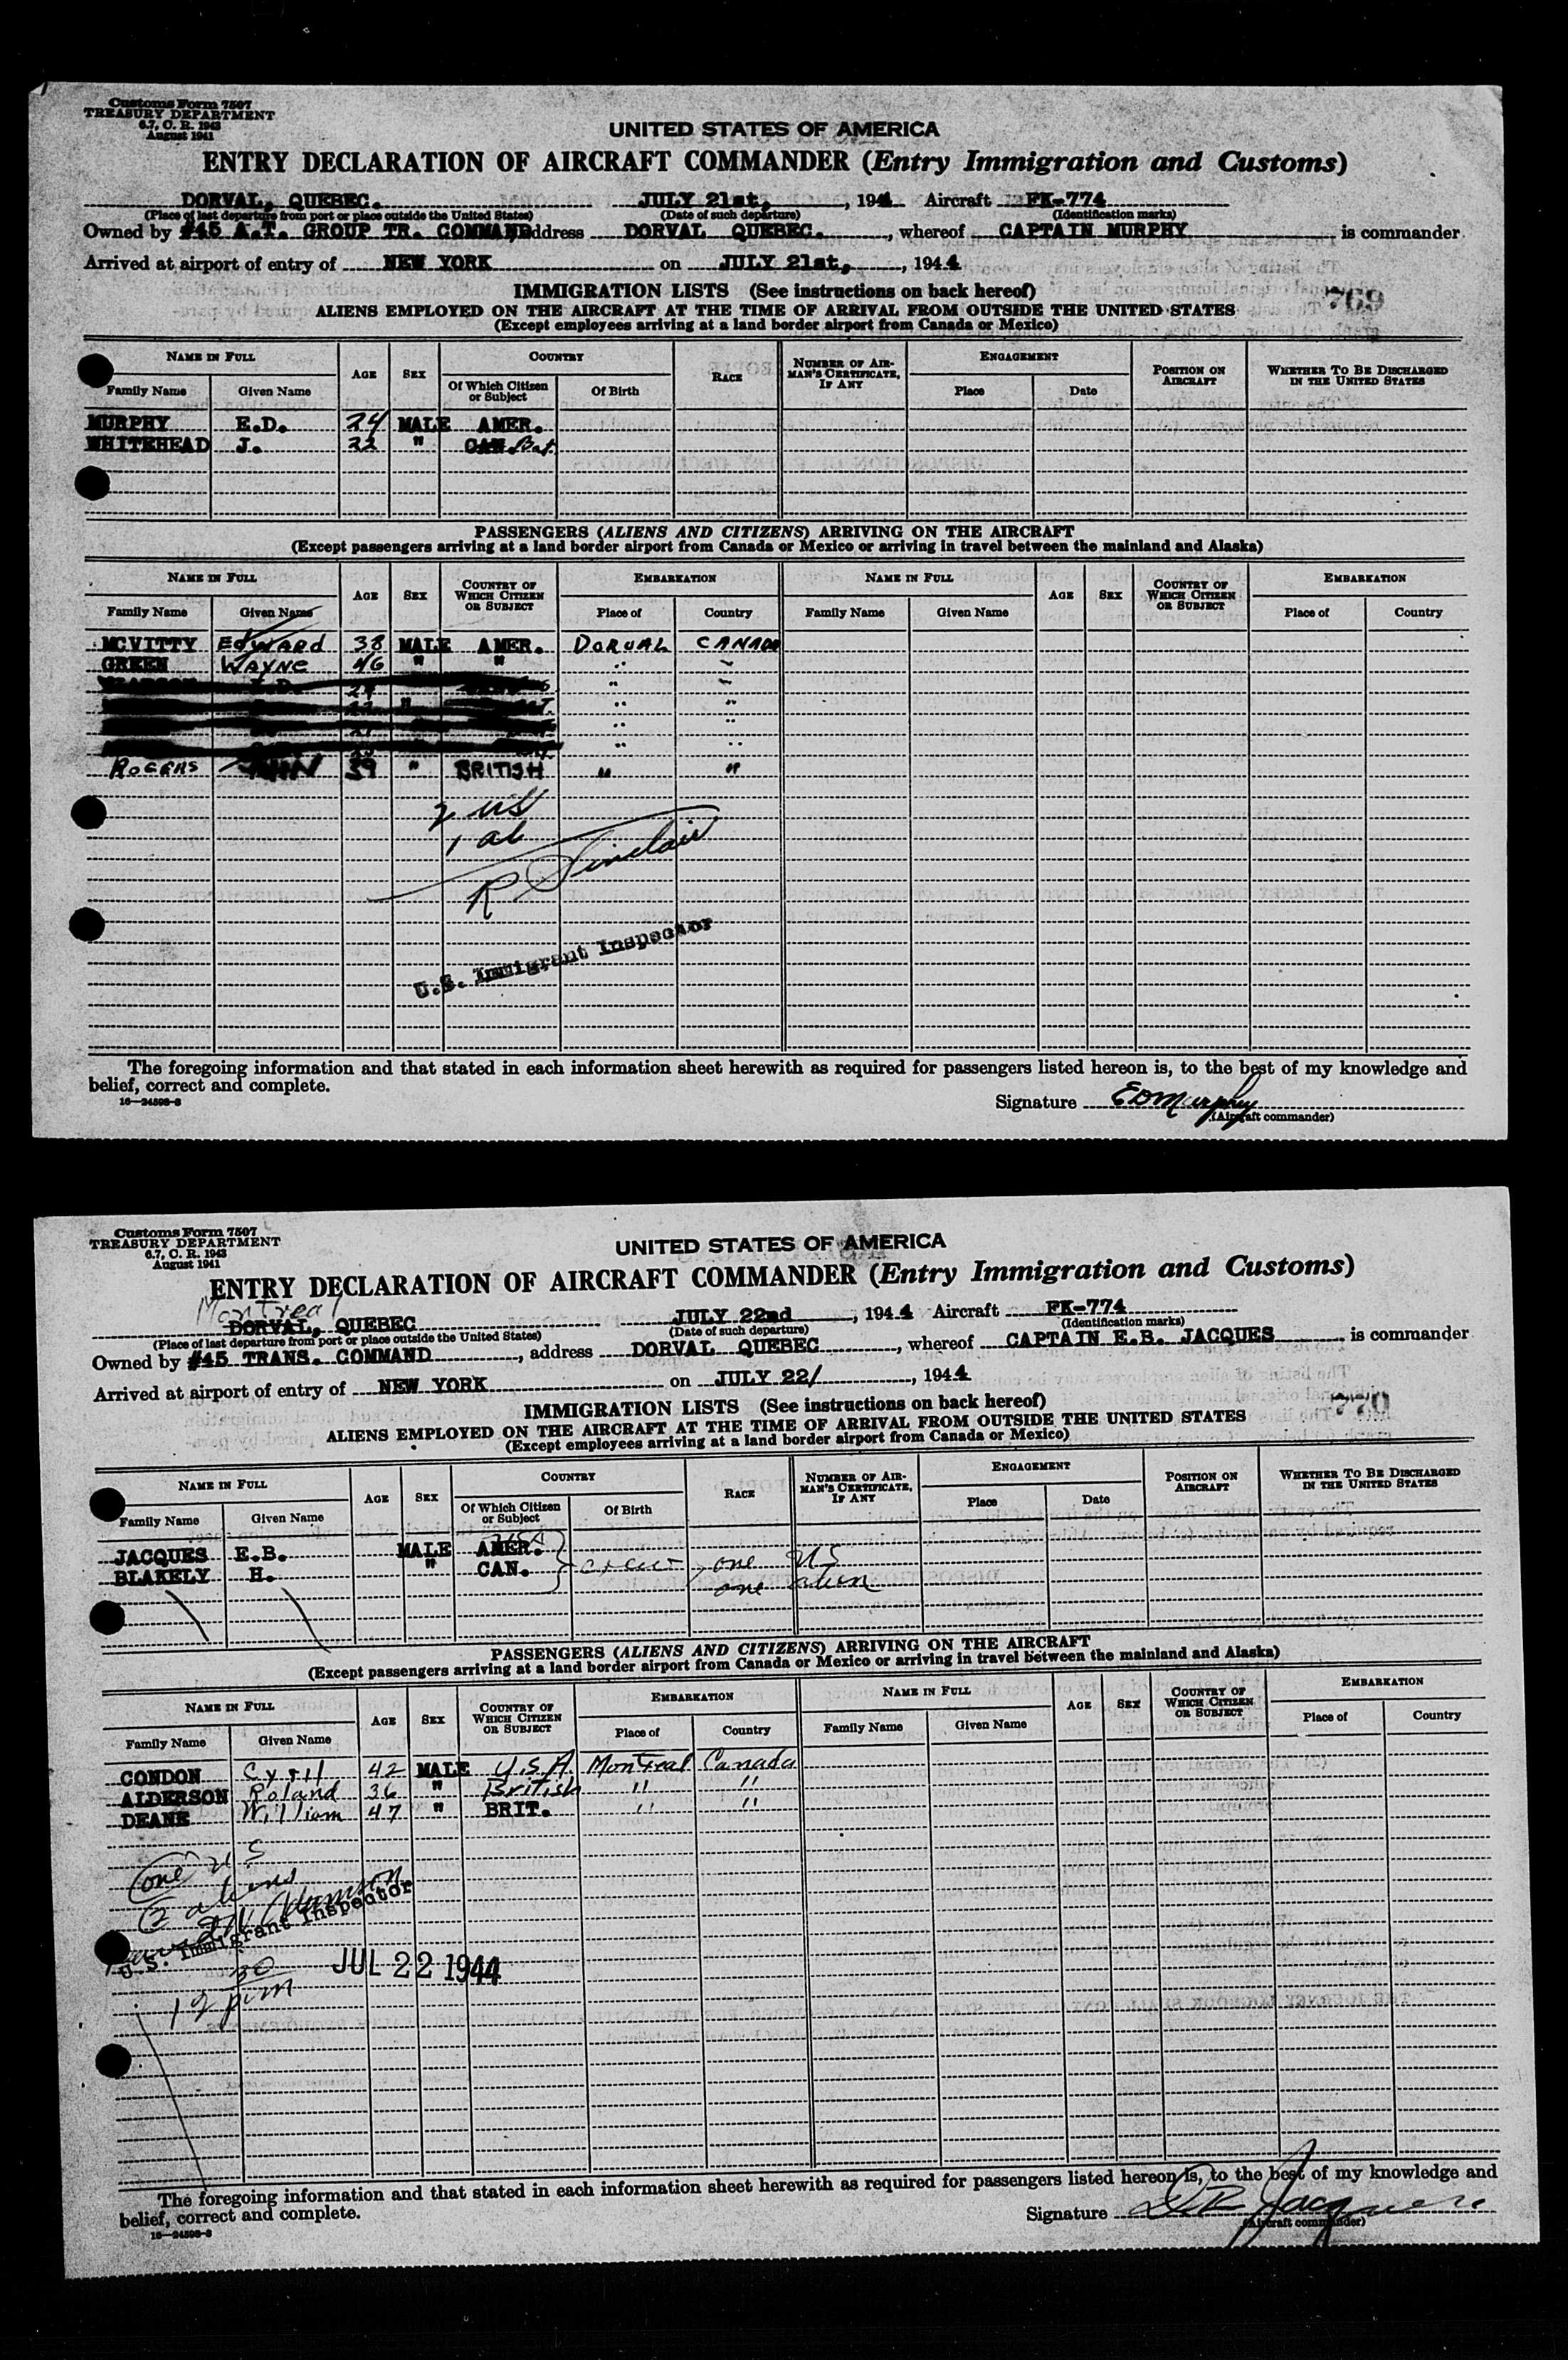 Customs Form 7507
TREASURY DEPARTMENT
6.7, C. R. 1943
August 1941
UNITED STATES OF AMERICA
ENTRY DECLARATION OF AIRCRAFT COMMANDER (Entry Immigration and Customs)
DORVAL, QUEBEC. JULY 21st, , 1944 Aircraft FK-774
(Place of last departure from port or place outside the United States) (Date of such departure) (Identification marks)
Owned by #45 A.T. GROUP TR. COMMAND address DORVAL QUEBEC. , whereof CAPTAIN MURPHY is commander
Arrived at airport of entry of NEW YORK on JULY 21st, , 1944
IMMIGRATION LISTS (See instructions on back hereof)
769
ALIENS EMPLOYED ON THE AIRCRAFT AT THE TIME OF ARRIVAL FROM OUTSIDE THE UNITED STATES
(Except employees arriving at a land border airport from Canada or Mexico)
NAME IN FULL AGE SEX COUNTRY RACE NUMBER OF AIRMAN'S CERTIFICATE, IF ANY ENGAGEMENT POSITION ON AIRCRAFT WHETHER TO BE DISCHARGED IN THE UNITED STATES
Family Name Given Name Of Which Citizen or Subject Of Birth Place Date
MURPHY E.D. 24 MALE AMER.
WHITEHEAD J. 22 " CAN
PASSENGERS (ALIENS AND CITIZENS) ARRIVING ON THE AIRCRAFT
(Except passengers arriving at a land border airport from Canada or Mexico or arriving in travel between the mainland and Alaska)
NAME IN FULL AGE SEX COUNTRY OF WHICH CITIZEN OR SUBJECT EMBARKATION NAME IN FULL AGE SEX COUNTRY OF WHICH CITIZEN OR SUBJECT EMBARKATION
Family Name Given Name Place of Country Family Name Given Name Place of Country
MCVITTY EDWARD 38 MALE AMER. DORVAL CANADA
GREEN WAYNE 46 " " " "
" "
" "
" "
" "
ROGERS JOHN 39 " BRITISH " "
2 US
1 al
R Sinclair
U.S. Immigrant Inspector
The foregoing information and that stated in each information sheet herewith as required for passengers listed hereon is, to the best of my knowledge and
belief, correct and complete.
16—24598-2
Signature EDMurphy
(Aircraft commander)
Customs Form 7507
TREASURY DEPARTMENT
6.7, C. R. 1943
August 1941
UNITED STATES OF AMERICA
ENTRY DECLARATION OF AIRCRAFT COMMANDER (Entry Immigration and Customs)
Montreal
DORVAL, QUEBEC JULY 22nd , 1944 Aircraft FK-774
(Place of last departure from port or place outside the United States) (Date of such departure) (Identification marks)
Owned by #45 TRANS. COMMAND , address DORVAL QUEBEC , whereof CAPTAIN E.B. JACQUES is commander
Arrived at airport of entry of NEW YORK on JULY 22/ , 1944
IMMIGRATION LISTS (See instructions on back hereof)
770
ALIENS EMPLOYED ON THE AIRCRAFT AT THE TIME OF ARRIVAL FROM OUTSIDE THE UNITED STATES
(Except employees arriving at a land border airport from Canada or Mexico)
NAME IN FULL AGE SEX COUNTRY RACE NUMBER OF AIRMAN'S CERTIFICATE, IF ANY ENGAGEMENT POSITION ON AIRCRAFT WHETHER TO BE DISCHARGED IN THE UNITED STATES
Family Name Given Name Of Which Citizen or Subject Of Birth Place Date
USA
JACQUES E.B. MALE AMER. one US
BLAKELY H. " CAN. crew one alien
PASSENGERS (ALIENS AND CITIZENS) ARRIVING ON THE AIRCRAFT
(Except passengers arriving at a land border airport from Canada or Mexico or arriving in travel between the mainland and Alaska)
NAME IN FULL AGE SEX COUNTRY OF WHICH CITIZEN OR SUBJECT EMBARKATION NAME IN FULL AGE SEX COUNTRY OF WHICH CITIZEN OR SUBJECT EMBARKATION
Family Name Given Name Place of Country Family Name Given Name Place of Country
CONDON Cyril 42 MALE U.S.A Montreal Canada
ALDERSON Roland 36 " British " "
DEANE William 47 " BRIT. " "
one US
2 aliens
U.S. Immigrant Inspector
JUL 22 1944
12 30 pm
The foregoing information and that stated in each information sheet herewith as required for passengers listed hereon is, to the best of my knowledge and
belief, correct and complete.
16—24598-2
Signature Jacques
(Aircraft commander)